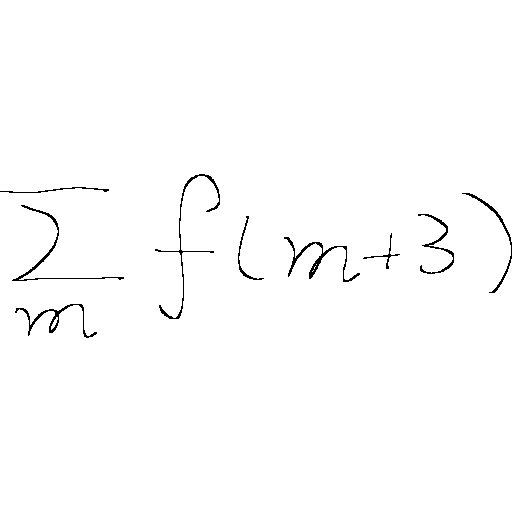 \sum_{m} f(m+3)